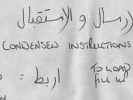 لارسال والاستقبال
CONDENSED INSTRUCTIONS
اربط : TO LOAD